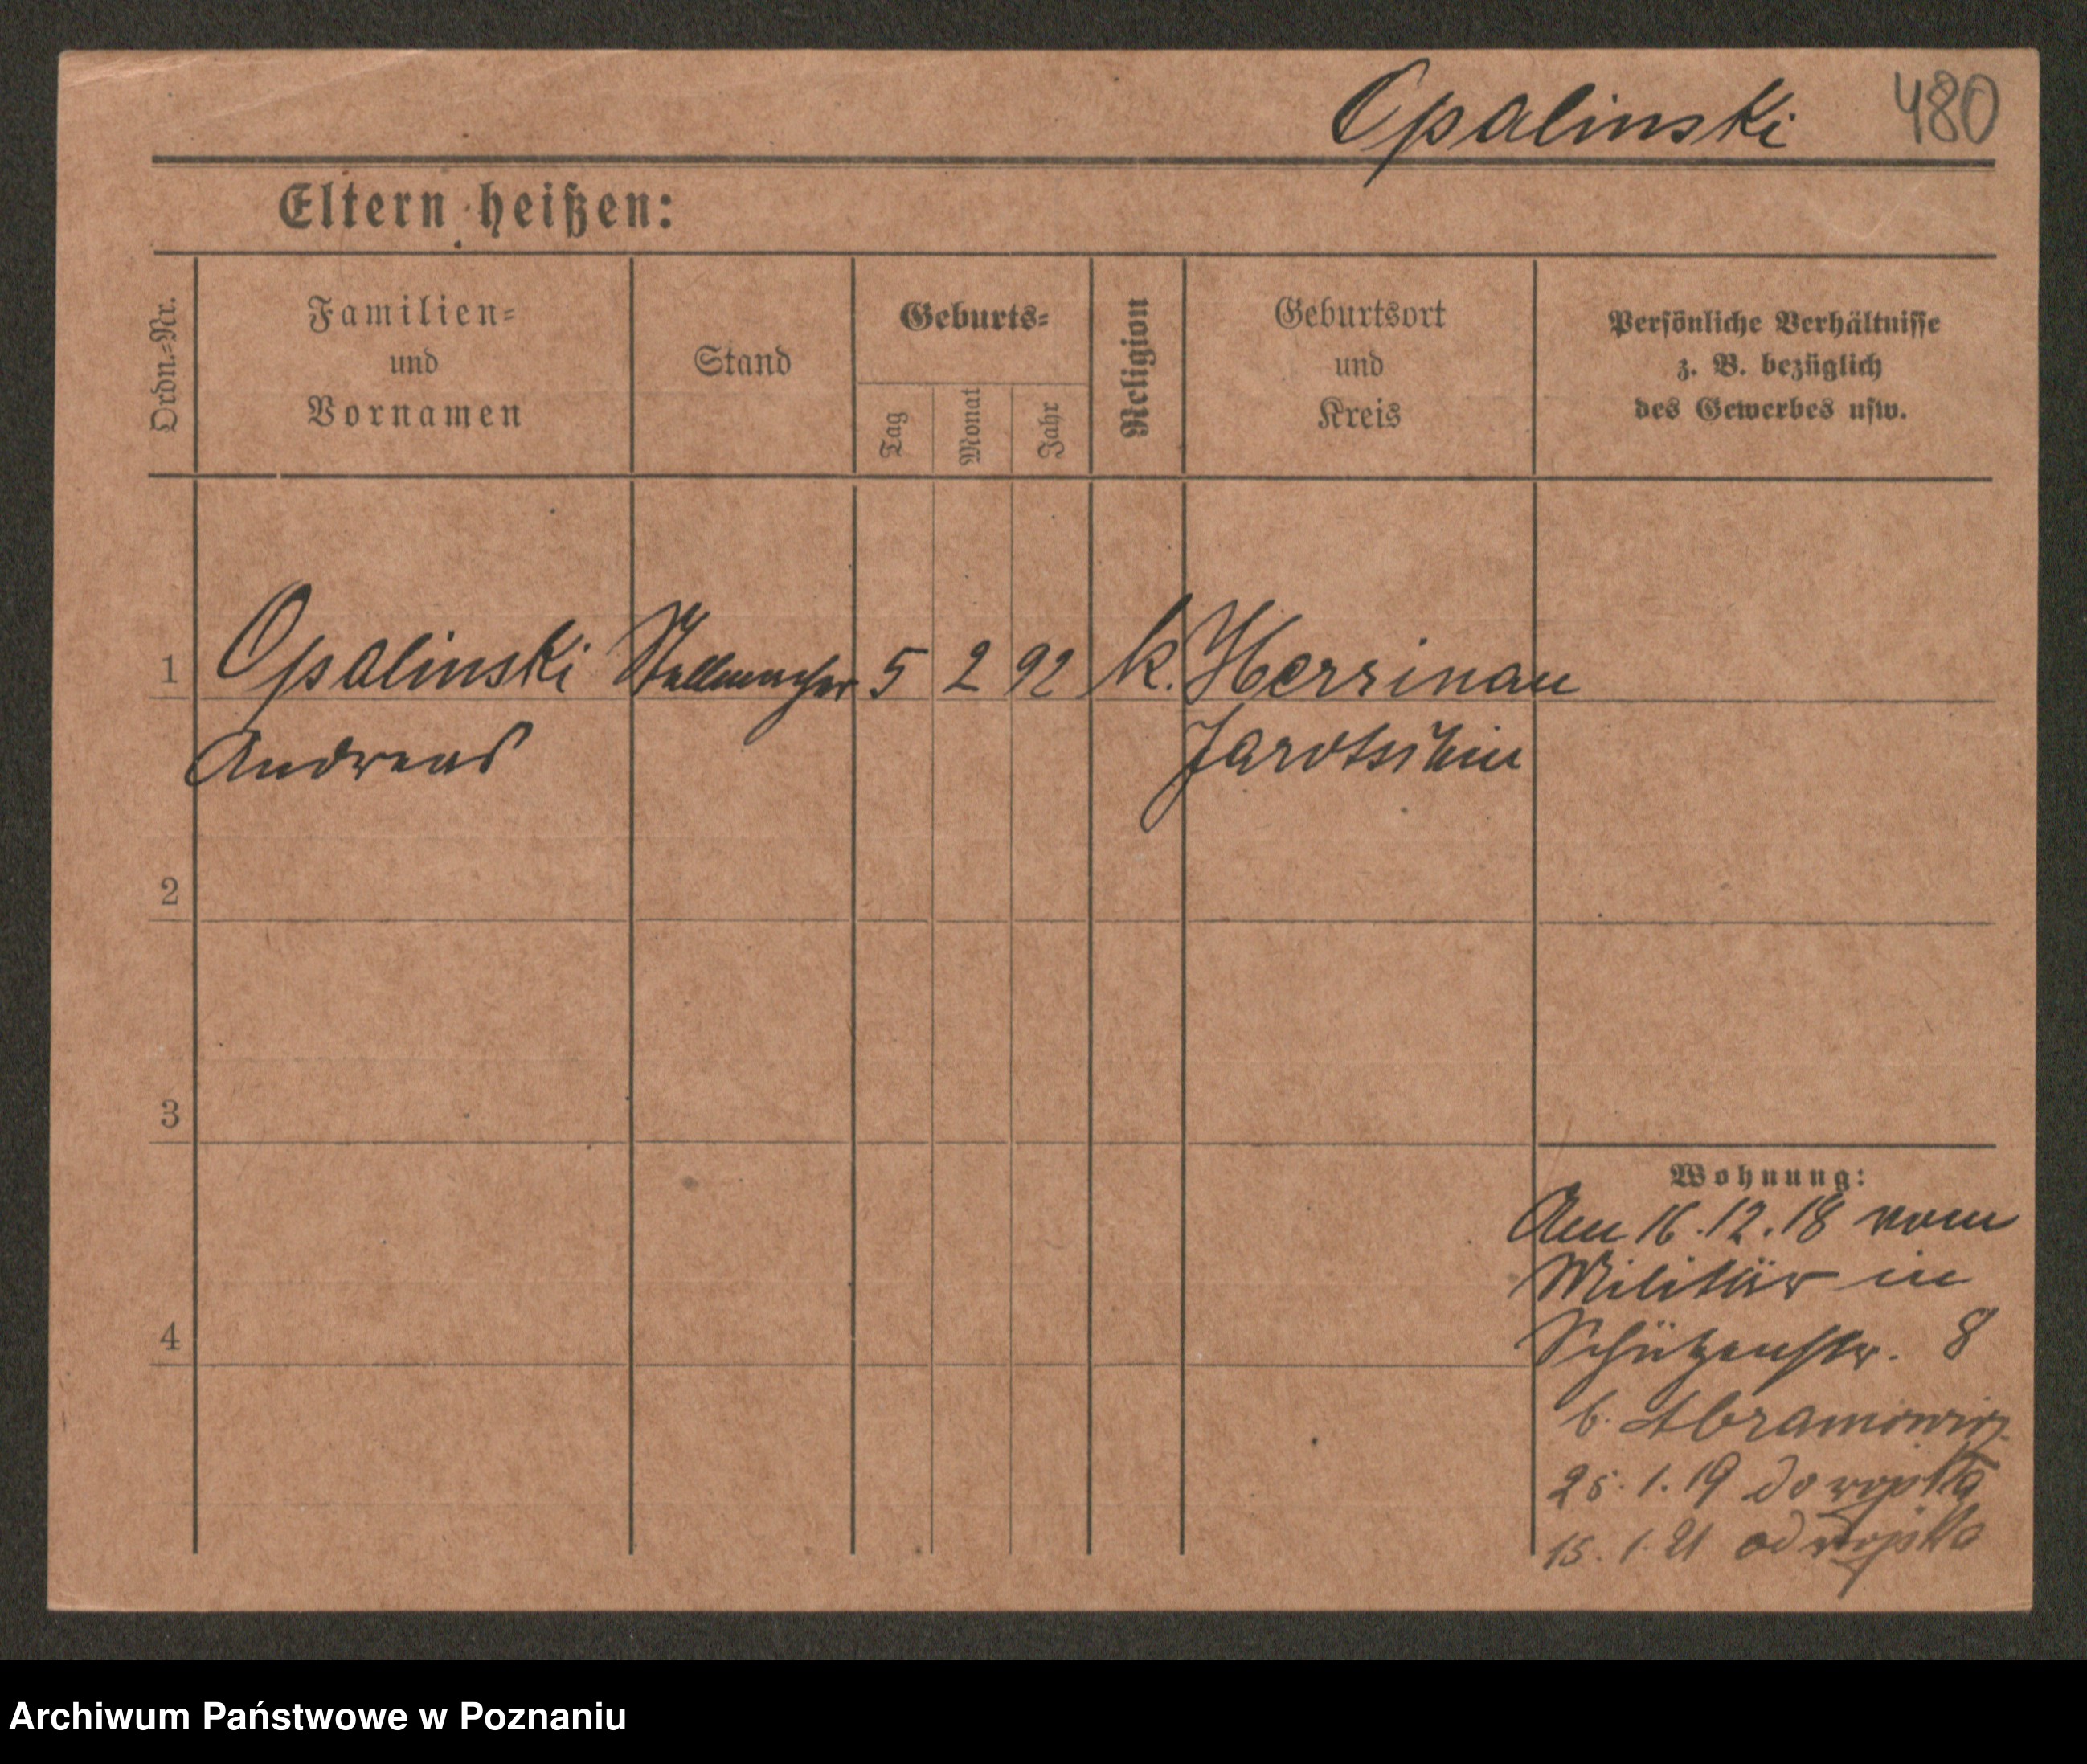 Opalinski 480
Eltern heißen:
Ordn.-Nr.
Familien-
und
Vornamen
Stand
Geburts-
Tag
Monat
Jahr
Religion
Geburtsort
und
Kreis
Persönliche Verhältnisse
z. B. bezüglich
des Gewerbes usw.
1 Opalinski Stellmacher 5 2 92 k.
Andreas Jarotschin
2
3
4
Wohnung:
Am 16.12.18 vom
Militär in
Schützenstr. 8
b. Abramowicz
25.1.19 do wojska
15.1.21 od wojska
Archiwum Państwowe w Poznaniu